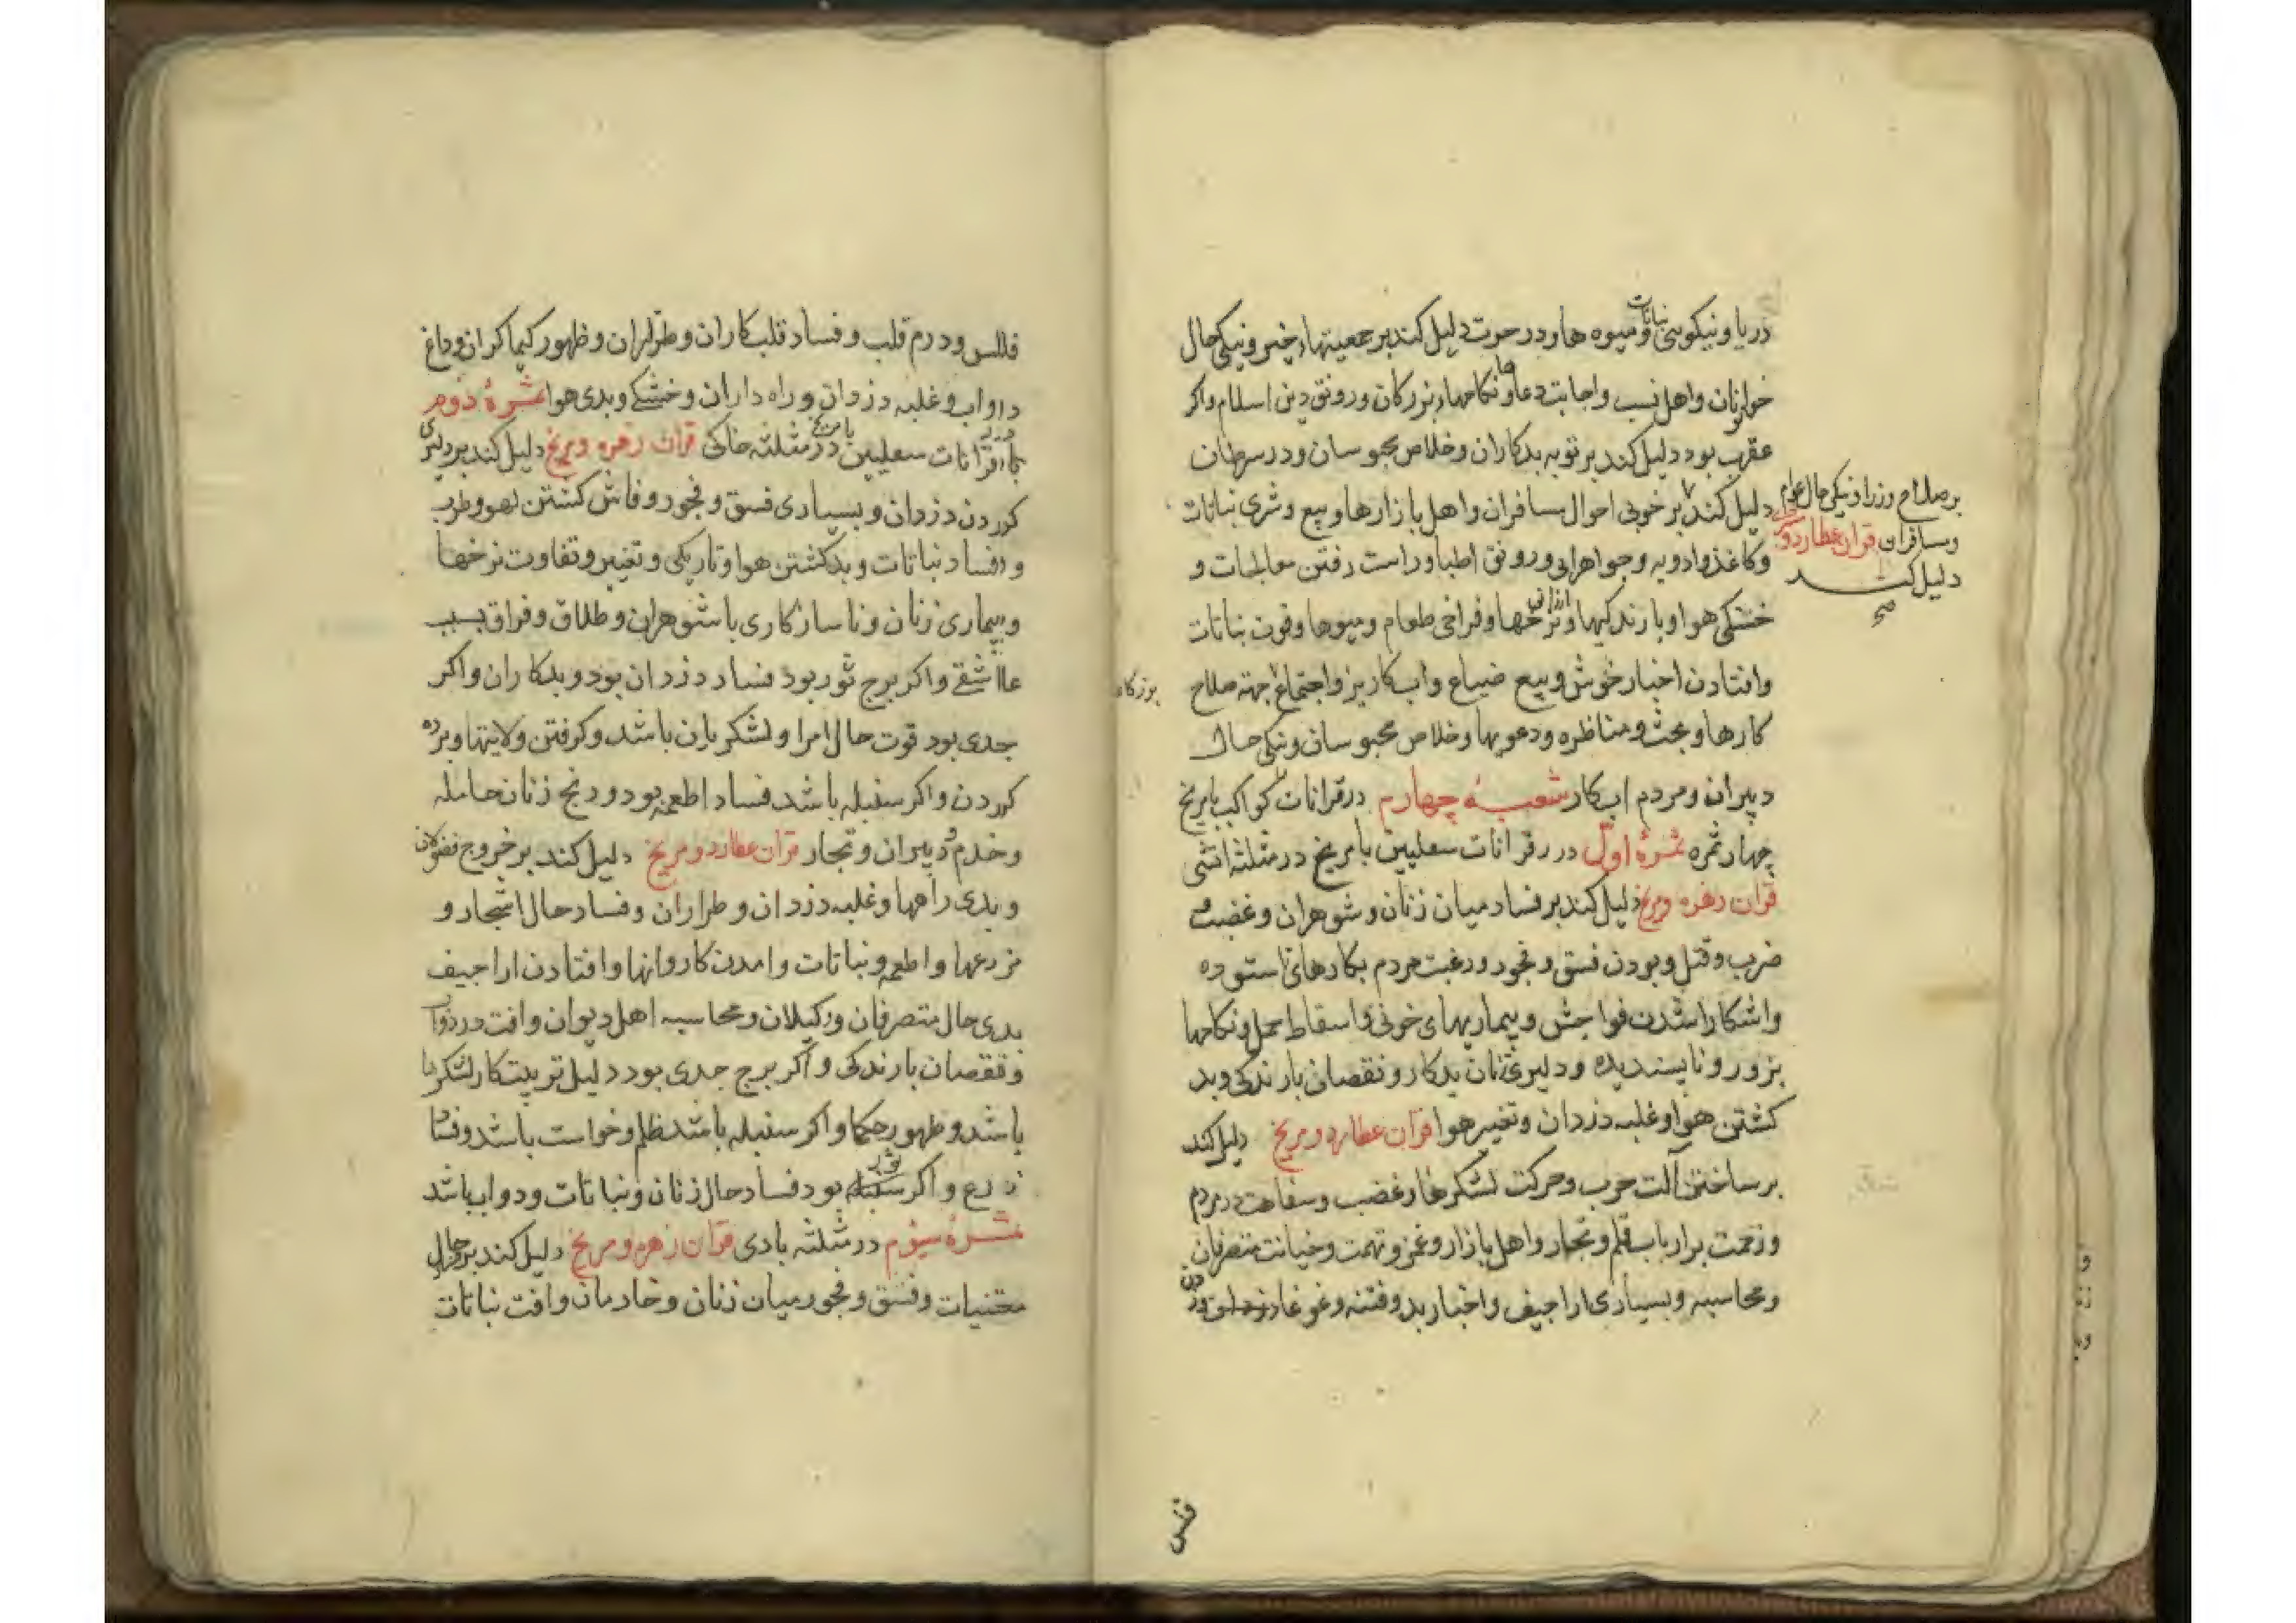 دریا و نیکویی نباتات و میوه ها و در حوت دلیل کند بر جمعیتهاء خیر و نیکی حال
خواتنان و اهل نسب و اجابت دعاها و نکاحهاء بزرکان و رونق دین اسلام و اکر
عقرب بود دلیل کند بر توبه بدکاران و خلاص محبوسان و در سرطان
بر صلاح وزرا و نیکی حال عوام
و مسافران قران عطارد و
دلیل کند
صح
دلیل کند بر خوبی احوال مسافران و اهل بازارها و بیع و شری نباتات
و کاغذ و ادویه و جواهرابی و رونق اطبا و راست رفتن معالجات و
خشکی هوا و بارندکیها و ارزانی نرخها و فراخی طعام و میوها و قوت نباتات
و افتادن اخبار خوش و بیع ضیاع و اب کاریز و اجتماع جهة صلاح
کارها و بحث و مناظره و دعویها و خلاص محبوسان و نیکی حال
دبیران و مردم اب کار شعبهٔ چهارم در قرانات کواکب با مریخ
چهار ثمره ثمرهٔ اوّل در قرانات سعلیین با مریخ در مثلثه اتشی
قران زهره و مریخ دلیل کند بر فساد میان زنان و شوهران و غضب و
ضرب و قتل و بودن فسق و فجور و رغبت مردم بکارهای ناستوده
و اشکارا شدن فواحش و بیماریهای خونی و اسقاط حمل و نکاحها
بزور و ناپسندیده و دلیری زنان بدکار و نقصان بارندکی و بد
کشتن هوا و غلبه دزدان و تغییر هوا قران عطارد و مریخ دلیل کند
بر ساختن آلت حرب و حرکت لشکرها و غضب و سفاهت در مردم
و زحمت بر ارباب قلم و تجار و اهل بازار و غمز و تهمت و خیانت متصرفان
و محاسبه و بسیاری اراجیف و اخبار بد و فتنه و غوغا
فلس
فلس و درم قلب و فساد قلب کاران و طراران و ظهور کیماکران و داغ
دواب و غلبه دزدان و راه داران و خشکی و بدی هوا ثمرهٔ دوم
در قرانات سعلیین با مریخ در مثلثه خاکی قران زهره و مریخ دلیل کند بر دلیری
کردن دزدان و بسیاری فسق و فجور و فاش کشتن لهو و طرب
و فساد نباتات و بد کشتن هوا و تاریکی و تغییر و تفاوت نرخها
و بیماری زنان و ناسازکاری با شوهران و طلاق و فراق بسبب
عاشقی و اکر برج ثور بود فساد دزدان بود و بدکاران و اکر
جدی بود قوت حال امرا و لشکریان باشد و کرفتن ولایتها و برده
کردن و اکر سنبله باشد فساد اطعمه بود و رنج زنان حامله
و خدم و دبیران و تجار قران عطارد و مریخ دلیل کند بر خروج فضولان
و بدی راهها و غلبه دزدان و طراران و فساد حال اشجار و
مزرعها و اطعمه و نباتات و امدن کاروانها و افتادن اراجیف
بدی حال متصرفان و وکیلان و محاسبه اهل دیوان و افت در دواب
و نقصان بارندکی و اکر برج جدی بود دلیل تربیت کار لشکرها
باشد و ظهور حکما و اکر سنبله باشد ظلم و خواست باشد و فساد
زرع و اکر ثور بود فساد حال زنان و نباتات و دواب باشد
ثمرهٔ سیوم در مثلثه بادی قران زهره و مریخ دلیل کند بر حال
مغنیات و فسق و فجور میان زنان و خادمان و افت نباتات